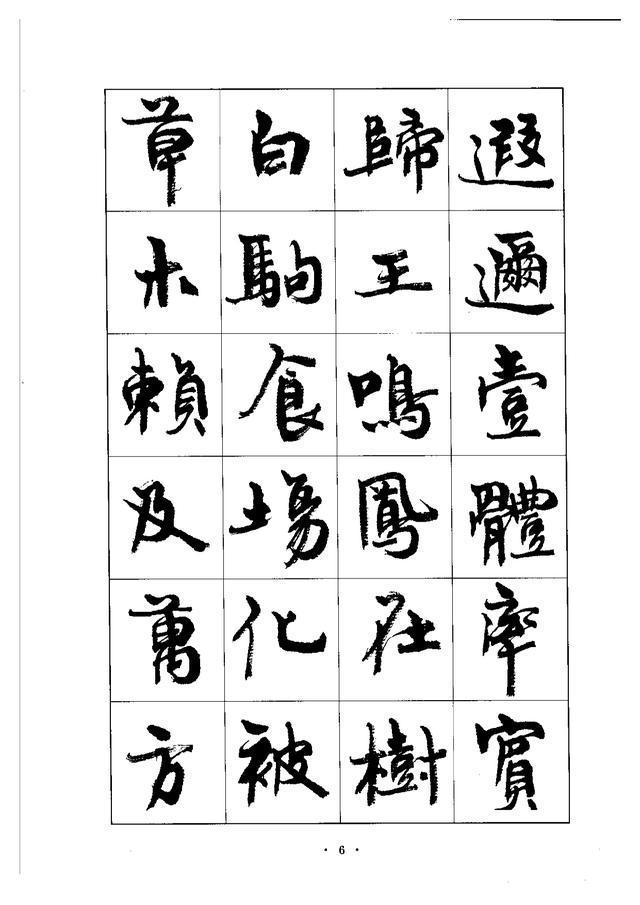 遐邇壹體率賓
歸王鳴鳳在樹
白駒食場化被
草木賴及萬方
· 6 ·